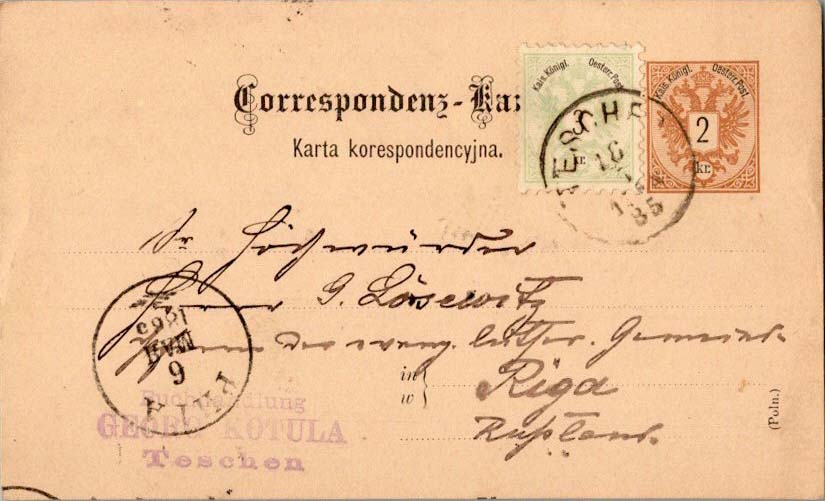 Correspondenz-Kar
Karta korespondencyjna.
Kais. Königl. Oesterr. Post.
kr.
Kais. Königl. Oesterr. Post.
2
kr.
TESCHEN
85
Sr Hochwürden
Herrn G. Lösewitz
der evang. luther. Gemeinde
in
w
Riga
Rußland.
МАЙ
6
РИГА
Buchhandlung
GEORG KOTULA
Teschen
(Poln.)